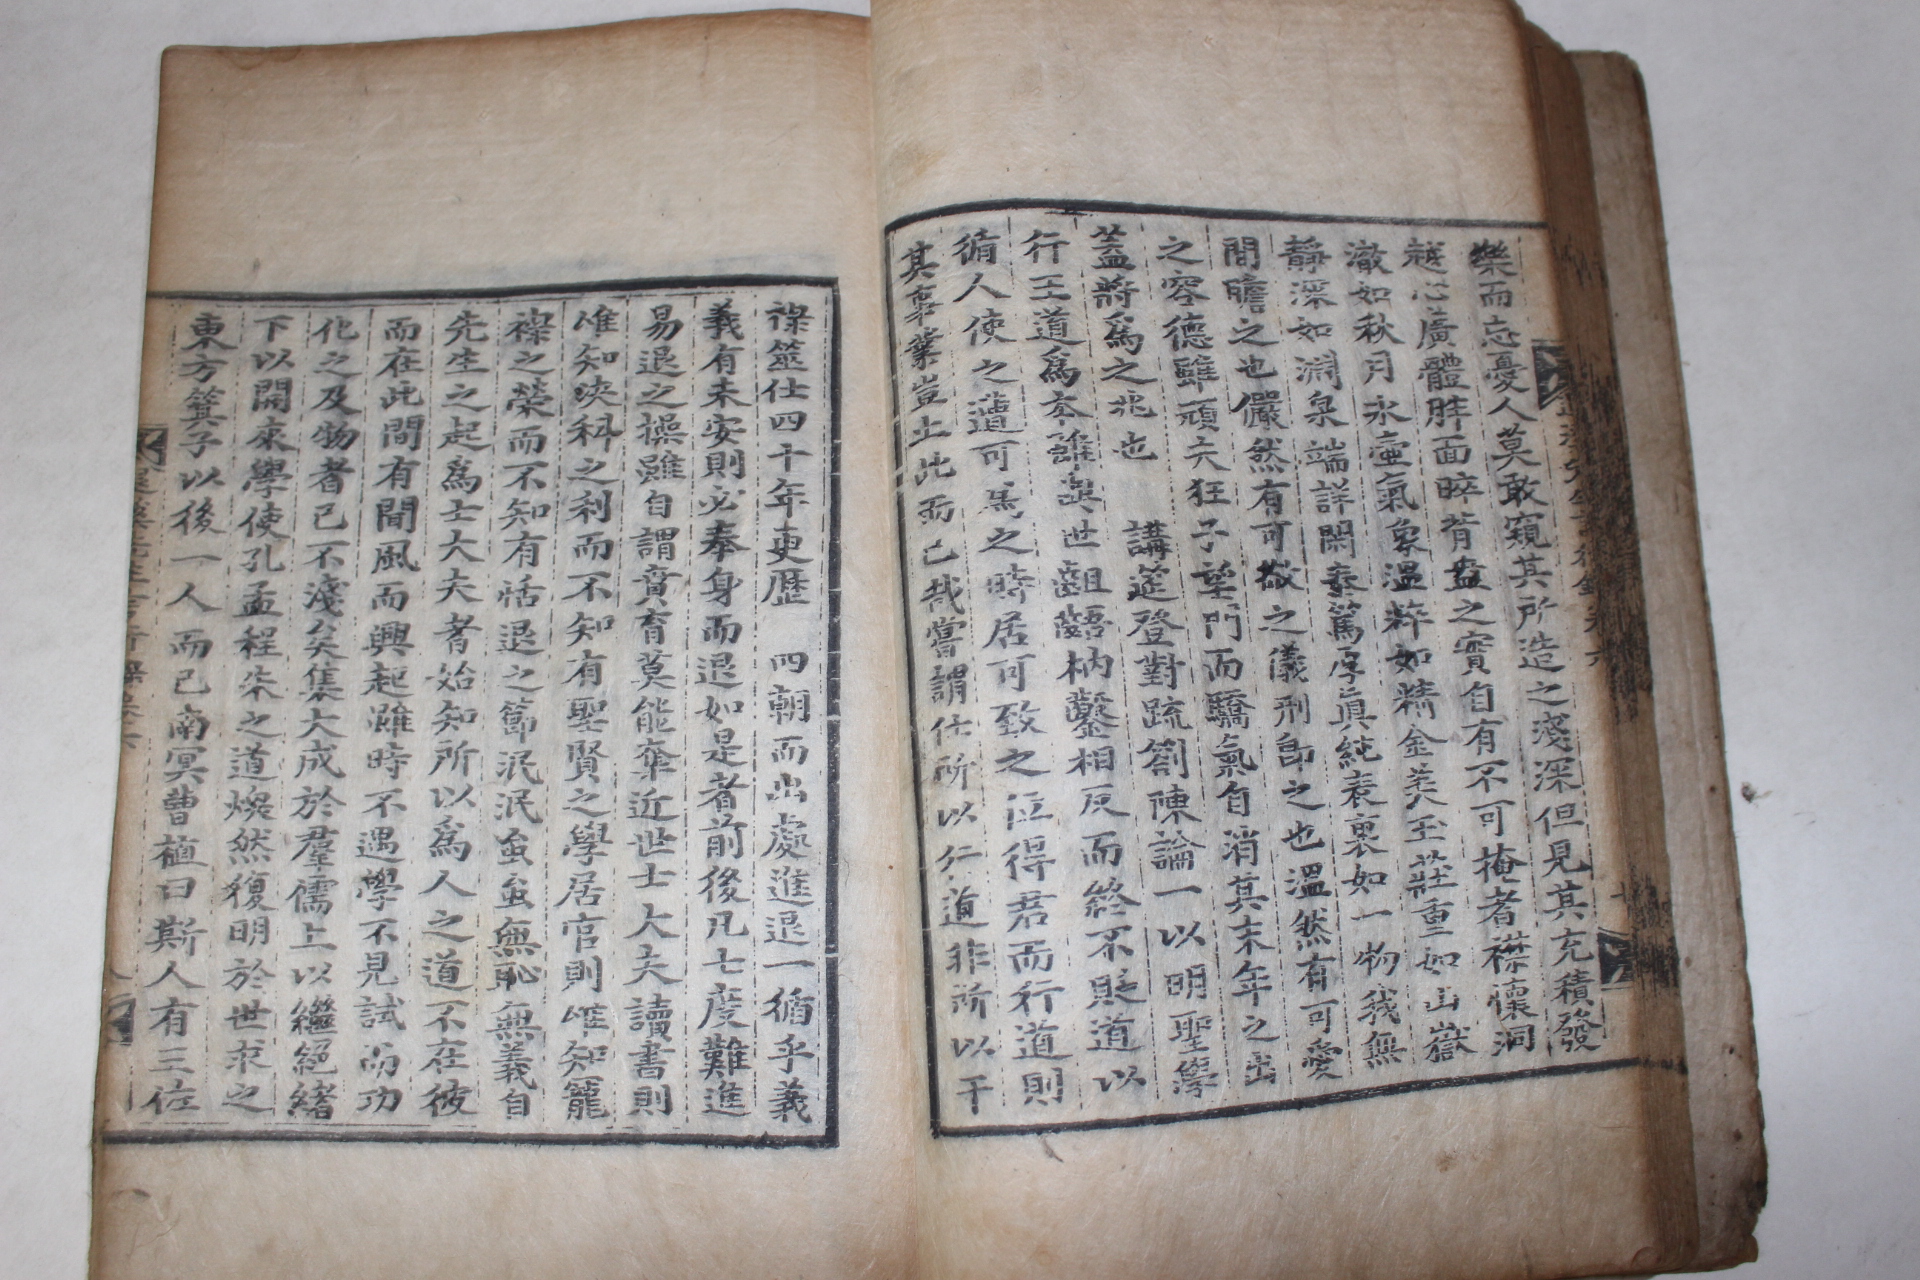 樂而忘憂人莫敢窺其所造之淺深但見其充積發
越心廣體胖面睟背盎之實自有不可掩者襟懷洞
澈如秋月氷壺氣象溫粹如精金美玉莊重如山嶽
靜深如淵泉端詳閑泰篤厚眞純表裏如一物我無
間瞻之也儼然有可敬之儀刑卽之也溫然有可愛
之容德雖頑夫狂子望門而驕氣自消其末年之出
蓋將爲之兆也　講筵登對疏箚陳論一以明聖學
行王道爲本雖與世齟齬枘鑿相反而終不貶道以
循人使之遭可爲之時居可致之位得君而行道則
其事業豈止此而已哉嘗謂仕所以行道非所以干
祿筮仕四十年更歷　四朝而出處進退一循乎義
義有未安則必奉身而退如是者前後凡七度難進
易退之操雖自謂賁育莫能奪近世士大夫讀書則
惟知决科之利而不知有聖賢之學居官則惟知寵
祿之榮而不知有恬退之節泯泯蚩蚩無恥無義自
先生之起爲士大夫者始知所以爲人之道不在彼
而在此間有聞風而興起雖時不遇學不見試而功
化之及物者已不淺矣集大成於羣儒上以繼絕緖
下以開來學使孔孟程朱之道煥然復明於世求之
東方箕子以後一人而已南冥曺植曰斯人有王佐